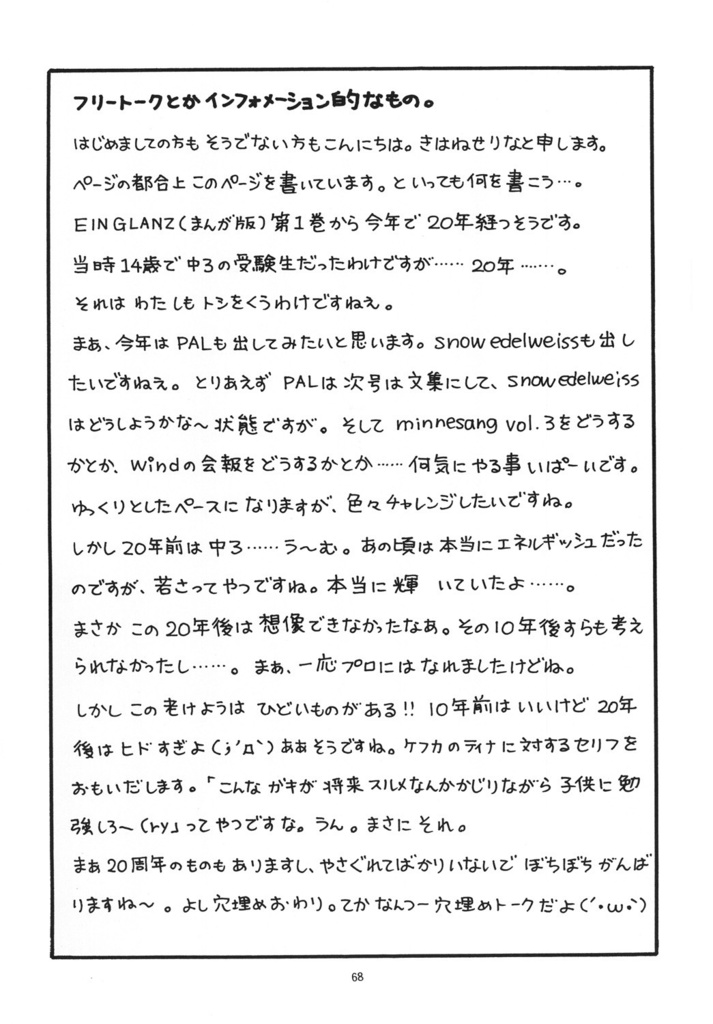 フリートークとかインフォメーション的なもの。
はじめましての方も そうでない方もこんにちは。きはねせりなと申します。
ページの都合上このページを書いています。といっても何を書こう…。
EINGLANZ(まんが版)第1巻から今年で20年経つそうです。
当時14歳で中3の受験生だったわけですが…… 20年……。
それは わたしも トシをくうわけですねぇ。
まぁ、今年は PALも出してみたいと思います。snow edelweissも出し
たいですねぇ。とりあえず PALは次号は文集にして、snow edelweiss
はどうしようかな～状態ですが。そして minnesang vol.3をどうする
かとか、Windの会報をどうするかとか……何気にやる事いぱーいです。
ゆっくりとしたペースになりますが、色々チャレンジしたいですね。
しかし20年前は中3……う～む。あの頃は本当にエネルギッシュだった
のですが、若さってやつですね。本当に輝 いていたよ……。
まさか この20年後は想像できなかったなあ。その10年後すらも考え
られなかったし……。まぁ、一応プロにはなれましたけどね。
しかしこの老けようは ひどいものがある!! 10年前はいいけど 20年
後はヒドすぎよ(;´Д`)ああそうですね。ケフカのティナに対するセリフを
おもいだします。「こんな ガキが 将来スルメなんかかじりながら子供に勉
強しろ～(ry」ってやつですな。うん。まさにそれ。
まあ20周年のものもありますし、やさぐれてばかりいないで ぼちぼちがんば
りますね～。よし穴埋めおわり。てかなんつー穴埋めトークだよ(´・ω・`)
68